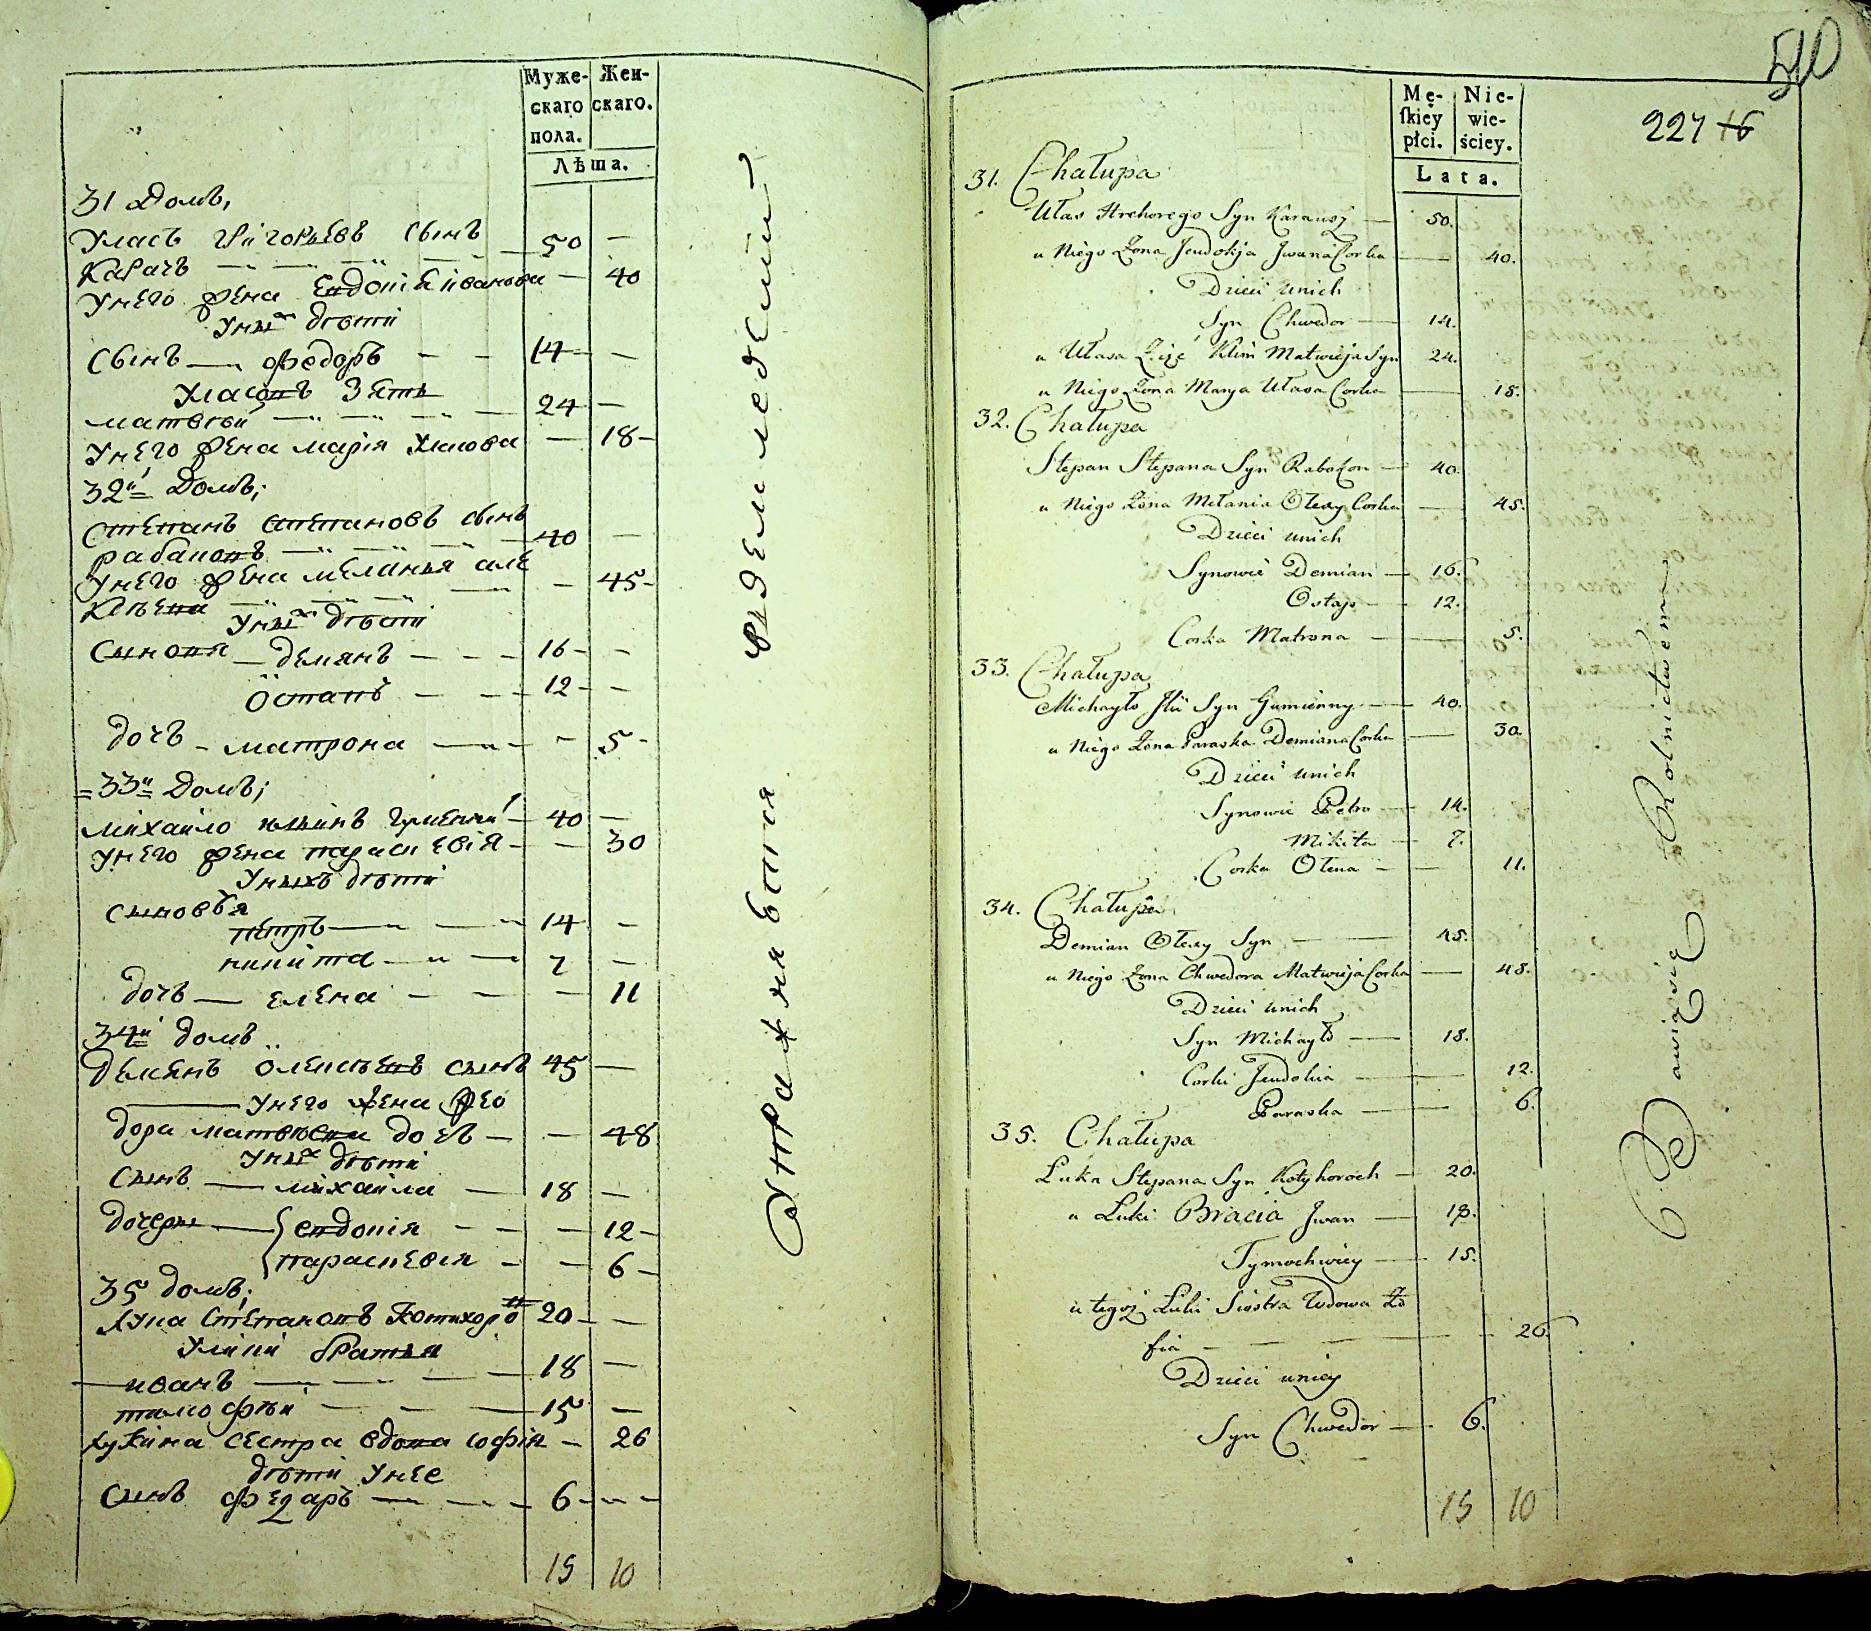 Муже-
скаго
пола.
Жен-
скаго.
Лѣта.
31 Домъ,
Уласъ григорьевъ сынъ 50 —
Карачъ
Унего жена Евдокія иванова — 40
Уныхъ дѣти
Сынъ — Федоръ — 14 —
Уласовъ Зять
матвѣй — 24 —
Унего жена марія Уласова — 18 —
32й Домъ;
Степанъ степановъ сынъ
рабаконъ 40 —
Унего жена меланья але
ксѣева — 45 —
Уныхъ дѣти
Сыновя — демянъ — 16 — —
Остапъ — 12 — —
дочь — матрона — — 5 —
33й Домъ;
михаило ильинъ гуменній — 40 —
Унего жена параскевія — — 30
Уныхъ дѣти
сыновья
петръ — 14 —
никита — 7 —
дочь — елена — — 11
34й домъ
демянъ олексѣевъ сынъ 45 —
Унего жена фео
дора матвѣева дочь — — 48
Уныхъ дѣти
Сынъ — михаила — 18 —
дочеры — евдокія — — 12 —
параскевія — — 6 —
35 домъ;
лука степановъ Котихоро 20 —
Улуки братья
иванъ — 18 —
тимофѣй — 15 —
лукина сестра вдова софія — 26
дѣти Унее
сынъ федаръ — 6 — —
15 10
Упражняются въ земледеліи
510
227 16
Mę-
ſkiey
płci.
Nie-
wie-
ściey.
Lata.
31. Chałupa
Ułas Hrehorego Syn Karausz — 50.
u Niego Żona Jeudokja Jwana Corka — 40.
Dzieci unich
Syn Chwedor — 14.
u Ułasa Zięć Klim Matwieja Syn 24.
u Niego Żona Marya Ułasa Corka — 18.
32. Chałupa
Stepan Stepana Syn Rabokon — 40.
u Niego Żona Mełania Ołexy Corka — 45.
Dzieci unich
Synowie Demian — 16.
Ostap — 12.
Corka Matrona — 5.
33. Chałupa
Michayło Jlii Syn Gumienny — 40.
u Niego Żona Paraska Demiana Corka — 30.
Dzieci unich
Synowie Petro — 14.
Mikita — 7.
Corka Ołena — 11.
34. Chałupa
Demian Ołexy Syn — 45.
u Niego Żona Chwedora Matwieja Corka — 48.
Dzieci unich
Syn Michayło — 18.
Corki Jeudokia — 12.
Paraska — 6.
35. Chałupa
Łuka Stepana Syn Kotyhoroch — 20.
u Łuki Bracia Jwan — 18.
Tymochwiey — 15.
u tegoż Łuki Siostra Wdowa Zo
fia — 26.
Dzieci uniey
Syn Chwedor — 6.
15 10
Bawią się Rolnictwem